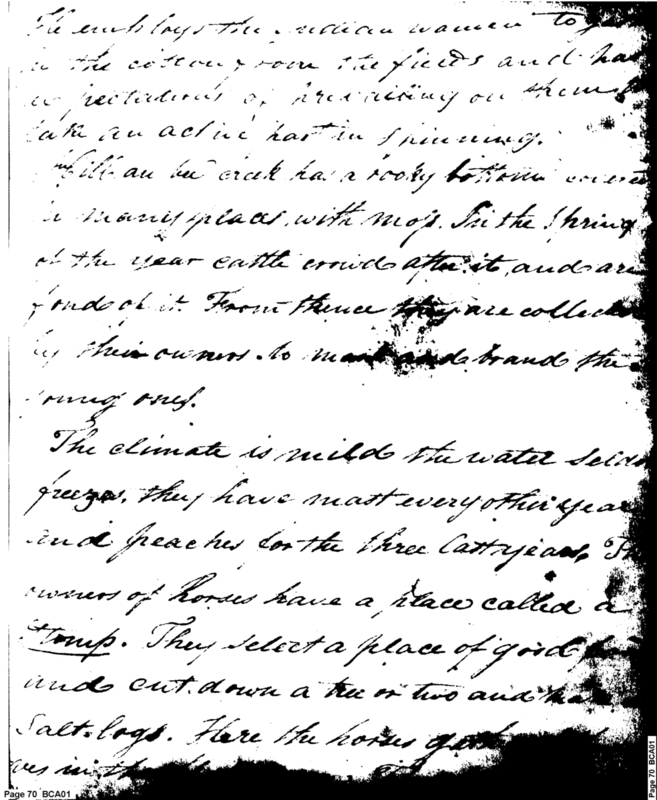 He employs the Indian women to
in the cotton from the fields and has
expectations of prevailing on them to
take an active part in spinning.
Hill au bee creek has a rocky bottom covered
in many places with moss. In the Spring
of the year cattle crowd after it, and are
fond of it. From thence they are collected
by their owners to mark and brand the
young ones.
The climate is mild the water seldom
freezes, they have mast every other year
and peaches for the three last years. The
owners of horses have a place called a
Stomp. They select a place of good
and cut down a tree or two and make
Salt logs. Here the horses gather
ves in the
Page 70 BCA01
Page 70 BCA01